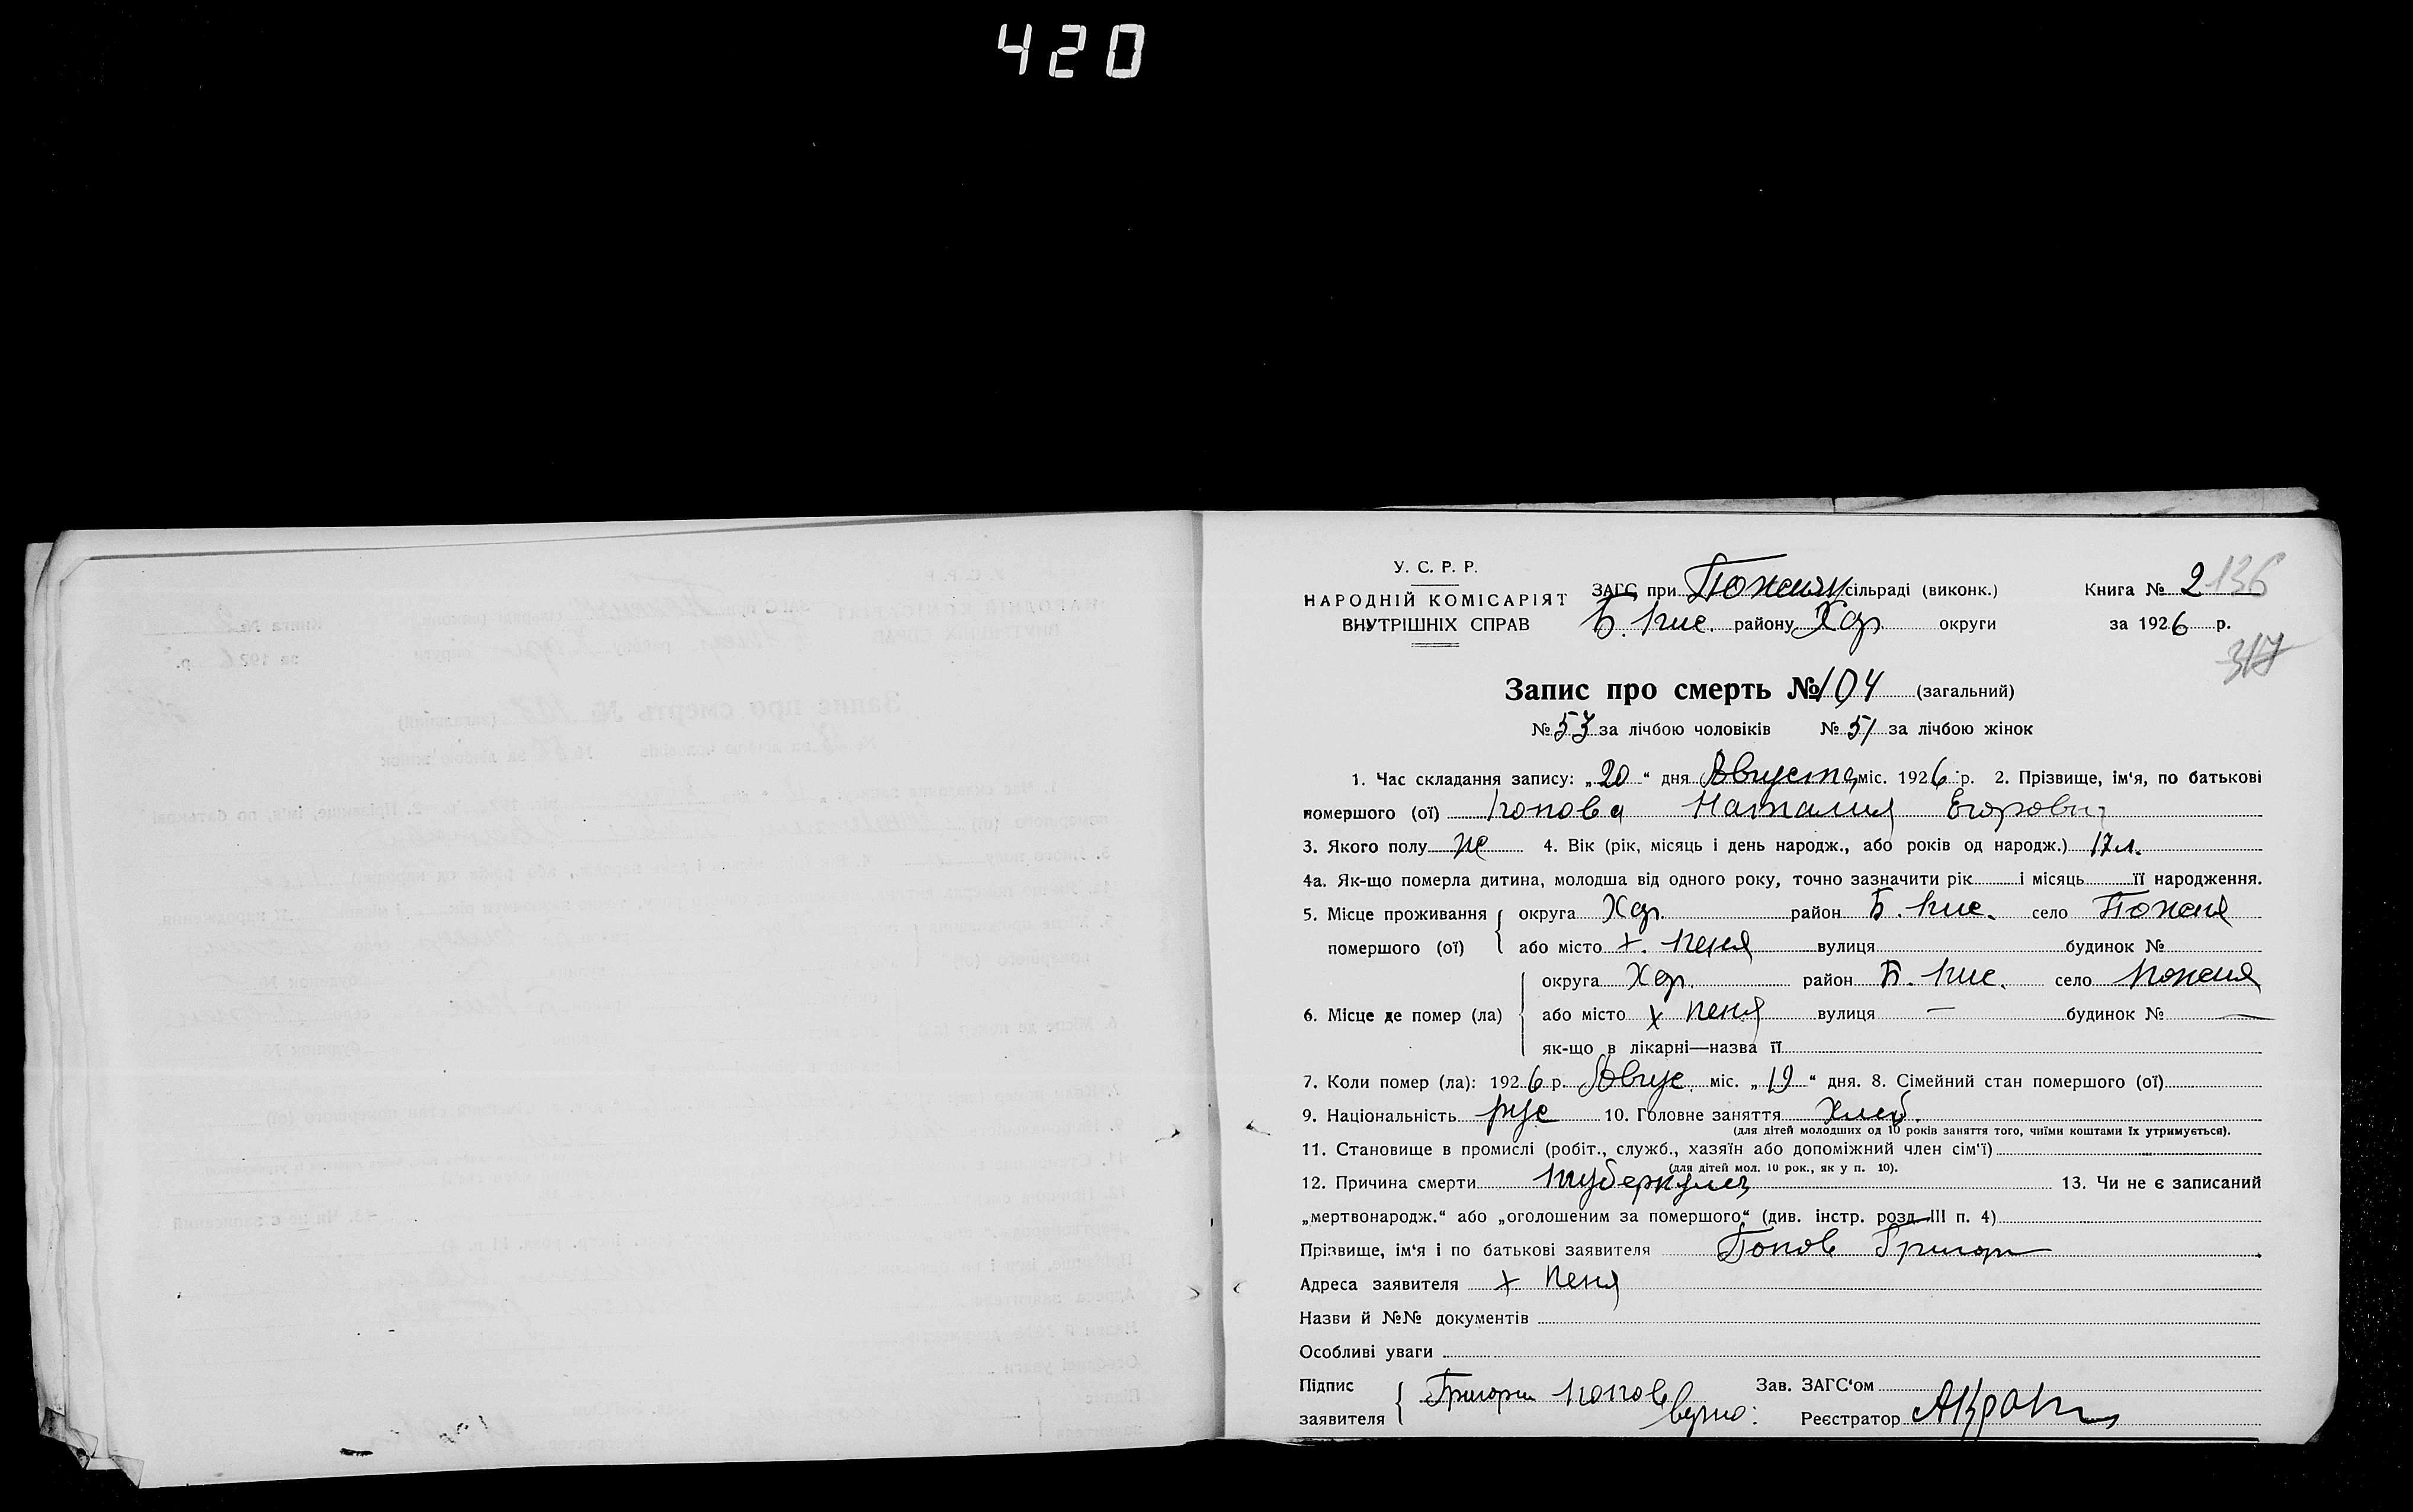 420
У. С. Р. Р.
НАРОДНІЙ КОМІСАРІЯТ
ВНУТРІШНІХ СПРАВ
ЗАГС при Поженя сільраді (виконк.)
Б. Пис. району Хар. округи
Книга № 2 136
за 1926 р.
317
Запис про смерть № 104 (загальний)
№ 53 за лічбою чоловіків № 51 за лічбою жінок
1. Час складання запису: „20“ дня Августа міс. 1926 р. 2. Прізвище, ім'я, по батькові
помершого (ої) Попова Наталия Егоровн
3. Якого полу же 4. Вік (рік, місяць і день народж., або років од народж.) 17 л.
4а. Як-що померла дитина, молодша від одного року, точно зазначити рік і місяць її народження.
5. Місце проживання помершого (ої) округа Хар. район Б. Пис. село Поженя
або місто х. Пеня вулиця будинок №
6. Місце де помер (ла) округа Хар. район Б. Пис. село Поженя
або місто х Пеня вулиця — будинок № —
як-що в лікарні—назва її
7. Коли помер (ла): 1926 р. Авгус. міс. „19“ дня. 8. Сімейний стан помершого (ої)
9. Національність рус 10. Головне заняття Хлеб.
(для дітей молодших од 10 років заняття того, чиїми коштами їх утримується).
11. Становище в промислі (робіт., служб., хазяїн або допоміжний член сім'ї)
(для дітей мол. 10 рок., як у п. 10).
12. Причина смерти туберкулез 13. Чи не є записаний
„мертвонародж.“ або „оголошеним за помершого“ (див. інстр. розд. III п. 4)
Прізвище, ім'я і по батькові заявителя Попов Григори
Адреса заявителя х Пеня
Назви й №№ документів
Особливі уваги
Підпис заявителя Григори Попов Зав. ЗАГС'ом
верно: Реєстратор